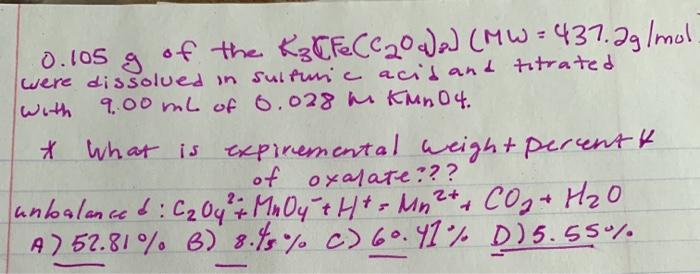 0.105 g of the K3[Fe(C2O4)2) (MW = 437.2g/mol.
were dissolved in sulfuric acid and titrated
with 9.00 mL of 0.028 M KMnO4.
* What is expiremental weight percent
of oxalate???
unbalanced : C2O4²⁻ + MnO4⁻ + H⁺ = Mn²⁺ + CO2 + H2O
A) 52.81% B) 8.45% C) 60.41% D) 5.55%